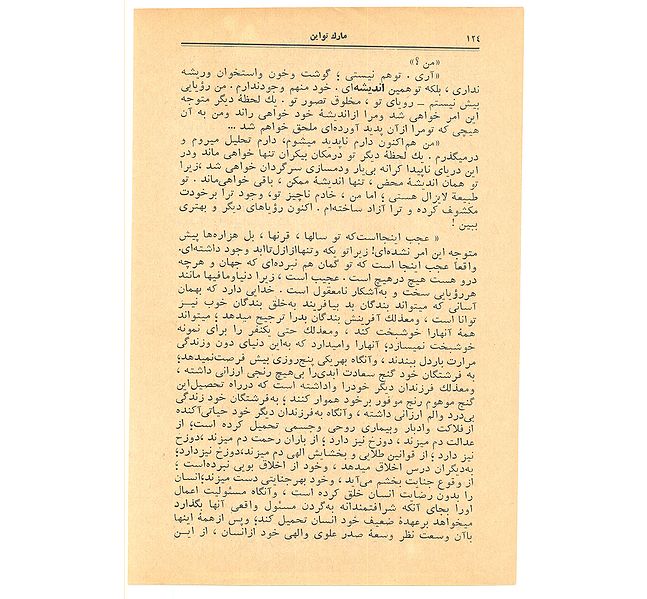 ۱۲٤
مارك تواین
«من ؟»
«آری . توهم نیستی ؛ گوشت وخون واستخوان وریشه
نداری ، بلکه توهمین اندیشه‌ای . خود منهم وجودندارم . من رؤیایی
بیش نیستم ـ رویای تو ، مخلوق تصور تو . یك لحظهٔ دیگر متوجه
این امر خواهی شد ومرا ازاندیشهٔ خود خواهی راند ومن به آن
هیچی که تومرا ازآن پدید آورده‌ای ملحق خواهم شد ...
«من هم‌اکنون دارم ناپدید میشوم، دارم تحلیل میروم و
درمیگذرم . یك لحظهٔ دیگر تو درمکان بیکران تنها خواهی ماند ودر
این دریای ناپیدا کرانه بی‌یار ودمسازی سرگردان خواهی شد ،زیرا
تو همان اندیشهٔ محض ، تنها اندیشهٔ ممکن ، باقی خواهی‌ماند . تو
طبیعة لایزال هستی ؛ اما من ، خادم ناچیز تو، وجود ترا برخودت
مکشوف کرده و ترا آزاد ساخته‌ام . اکنون رؤیاهای دیگر و بهتری
ببین !
« عجب اینجااست‌که تو سالها ، قرنها ، بل هزاره‌ها پیش
متوجه این امر نشده‌ای! زیراتو یکه وتنهاازازل‌تاابد وجود داشته‌ای.
واقعاً عجب اینجا است که تو گمان هم نبرده‌ای که جهان و هرچه
درو هست هیچ درهیچ است . عجیب است ، زیرا دنیاومافیها مانند
هررؤیایی سخت و به‌آشکار نامعقول است . خدایی دارد که بهمان
آسانی که میتواند بندگان بد بیافریند به‌خلق بندگان خوب نیـز
توانا است ، ومعذلك آفرینش بندگان بدرا ترجیح میدهد ؛ میتواند
همهٔ آنهارا خوشبخت کند ، ومعذلك حتی یکنفر را برأی نمونه
خوشبخت نمیسازد؛ آنهارا وامیدارد که به‌این دنیای دون وزندگی
مرارت باردل ببندند ، وآنگاه بهریکی پنج‌روزی بیش فرصت‌نمیدهد؛
به فرشتگان خود گنج سعادت ابدی‌را بی‌هیچ رنجی ارزانی داشته ،
ومعذلك فرزندان دیگر خودرا واداشته است که درراه تحصیل‌این
گنج موهوم رنج موفور برخود هموار کنند ؛ به‌فرشتگان خود زندگی
بی‌درد والم ارزانی داشته ، وآنگاه به‌فرزندان دیگر خود حیاتی‌آکنده
ازفلاکت وادبار وبیماری روحی وجسمی تحمیل کرده است؛ از
عدالت دم میزند ، دوزخ نیز دارد ؛ از باران رحمت دم میزند ،دوزخ
نیز دارد ؛ از قوانین طلایی و بخشایش الهی دم میزند،دوزخ نیزدارد؛
به‌دیگران درس اخلاق میدهد ، وخود از اخلاق بویی نبرده‌است ؛
از وقوع جنایت بخشم می‌آید ، وخود بهرجنایتی دست میزند؛انسان
را بدون رضایت انسان خلق کرده است ، وآنگاه مسئولیت اعمال
اورا بجای آنکه شرافتمندانه به‌گردن مسئول واقعی آنها بگذارد
میخواهد برعهدهٔ ضعیف خود انسان تحمیل کند؛ وپس ازهمهٔ اینها
باآن وسعت نظر وسعهٔ صدر علوی والهی خود ازانسان ، از ایـن